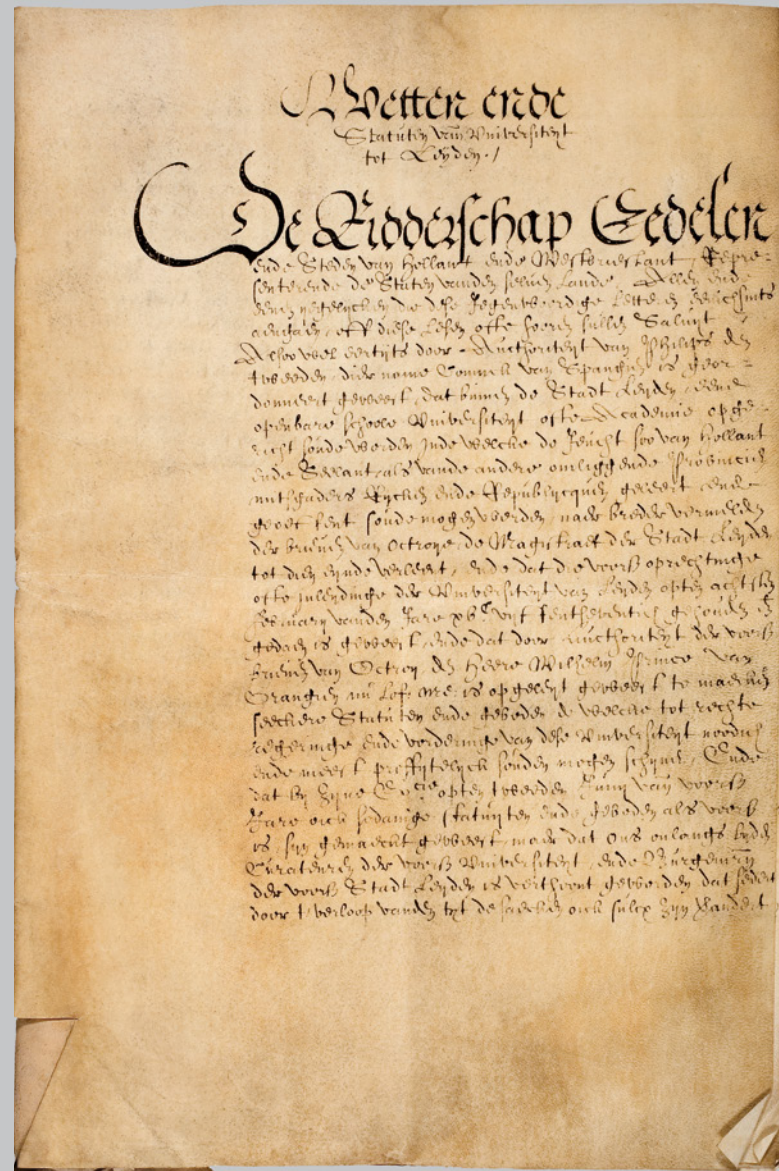 Wetten ende
Statuten van Universiteyt
tot Leyden./
De Ridderschap Eedelen
ende Steden van Hollant ende Westvrieslant, Repre-
senterende de Staten vanden selven Lande. Allen ende
eenen yegelycken die dese Jegenwoordige Letteren
aengaen, off diese Lesen ofte hooren sullen Saluyt
Alsoo wel eertyts door Aucthoriteyt van Philips den
tweeden dier name Connick van Spangien is geor-
donneert geweest, dat binnen de Stadt Leyden eene
openbare schoole Universiteyt ofte Academie opge-
richt soude worden Inde welcke de Jeucht soo van Hollant
ende Zeelant, als vande andere omliggende Provincien
mitsgaders Rycken ende Republycquen geleert ende
soude mogen werden, naer breder vermelden
der brieven van Octroye de Magistraet der Stadt Leyden
tot dien eynde verleent, ende dat de voorsz oprechtinge
ofte inleydinge der Universiteyt van Leyden opten achtsten
february vanden Jare xvc vyf tseventich gehouden en
gedaen is geweest, ende dat door aucthoriteyt der voorsz
brieven van Octroy, den Heere Wilhelm Prince van
Orangien is opgeleyt geweest te maecken
seeckere Statuten ende geboden de welcke tot rechte
regeringe ende vorderinge van dese Universiteyt noodich
ende meest proffytelyck souden mogen schynen, Ende
dat by Zyne Excie opten tweeden Juny van voorsz
Jare oick sodanige statuyten ende geboden als voorsz
is, syn gemaeckt geweest, maer dat ons onlangs byden
Curateuren der voorsz Universiteyt, ende Burgemrn
der voorsz Stadt Leyden is verthoont geworden dat sedert
door t verloop vanden tyt de saecken oick sulcx zyn verandert